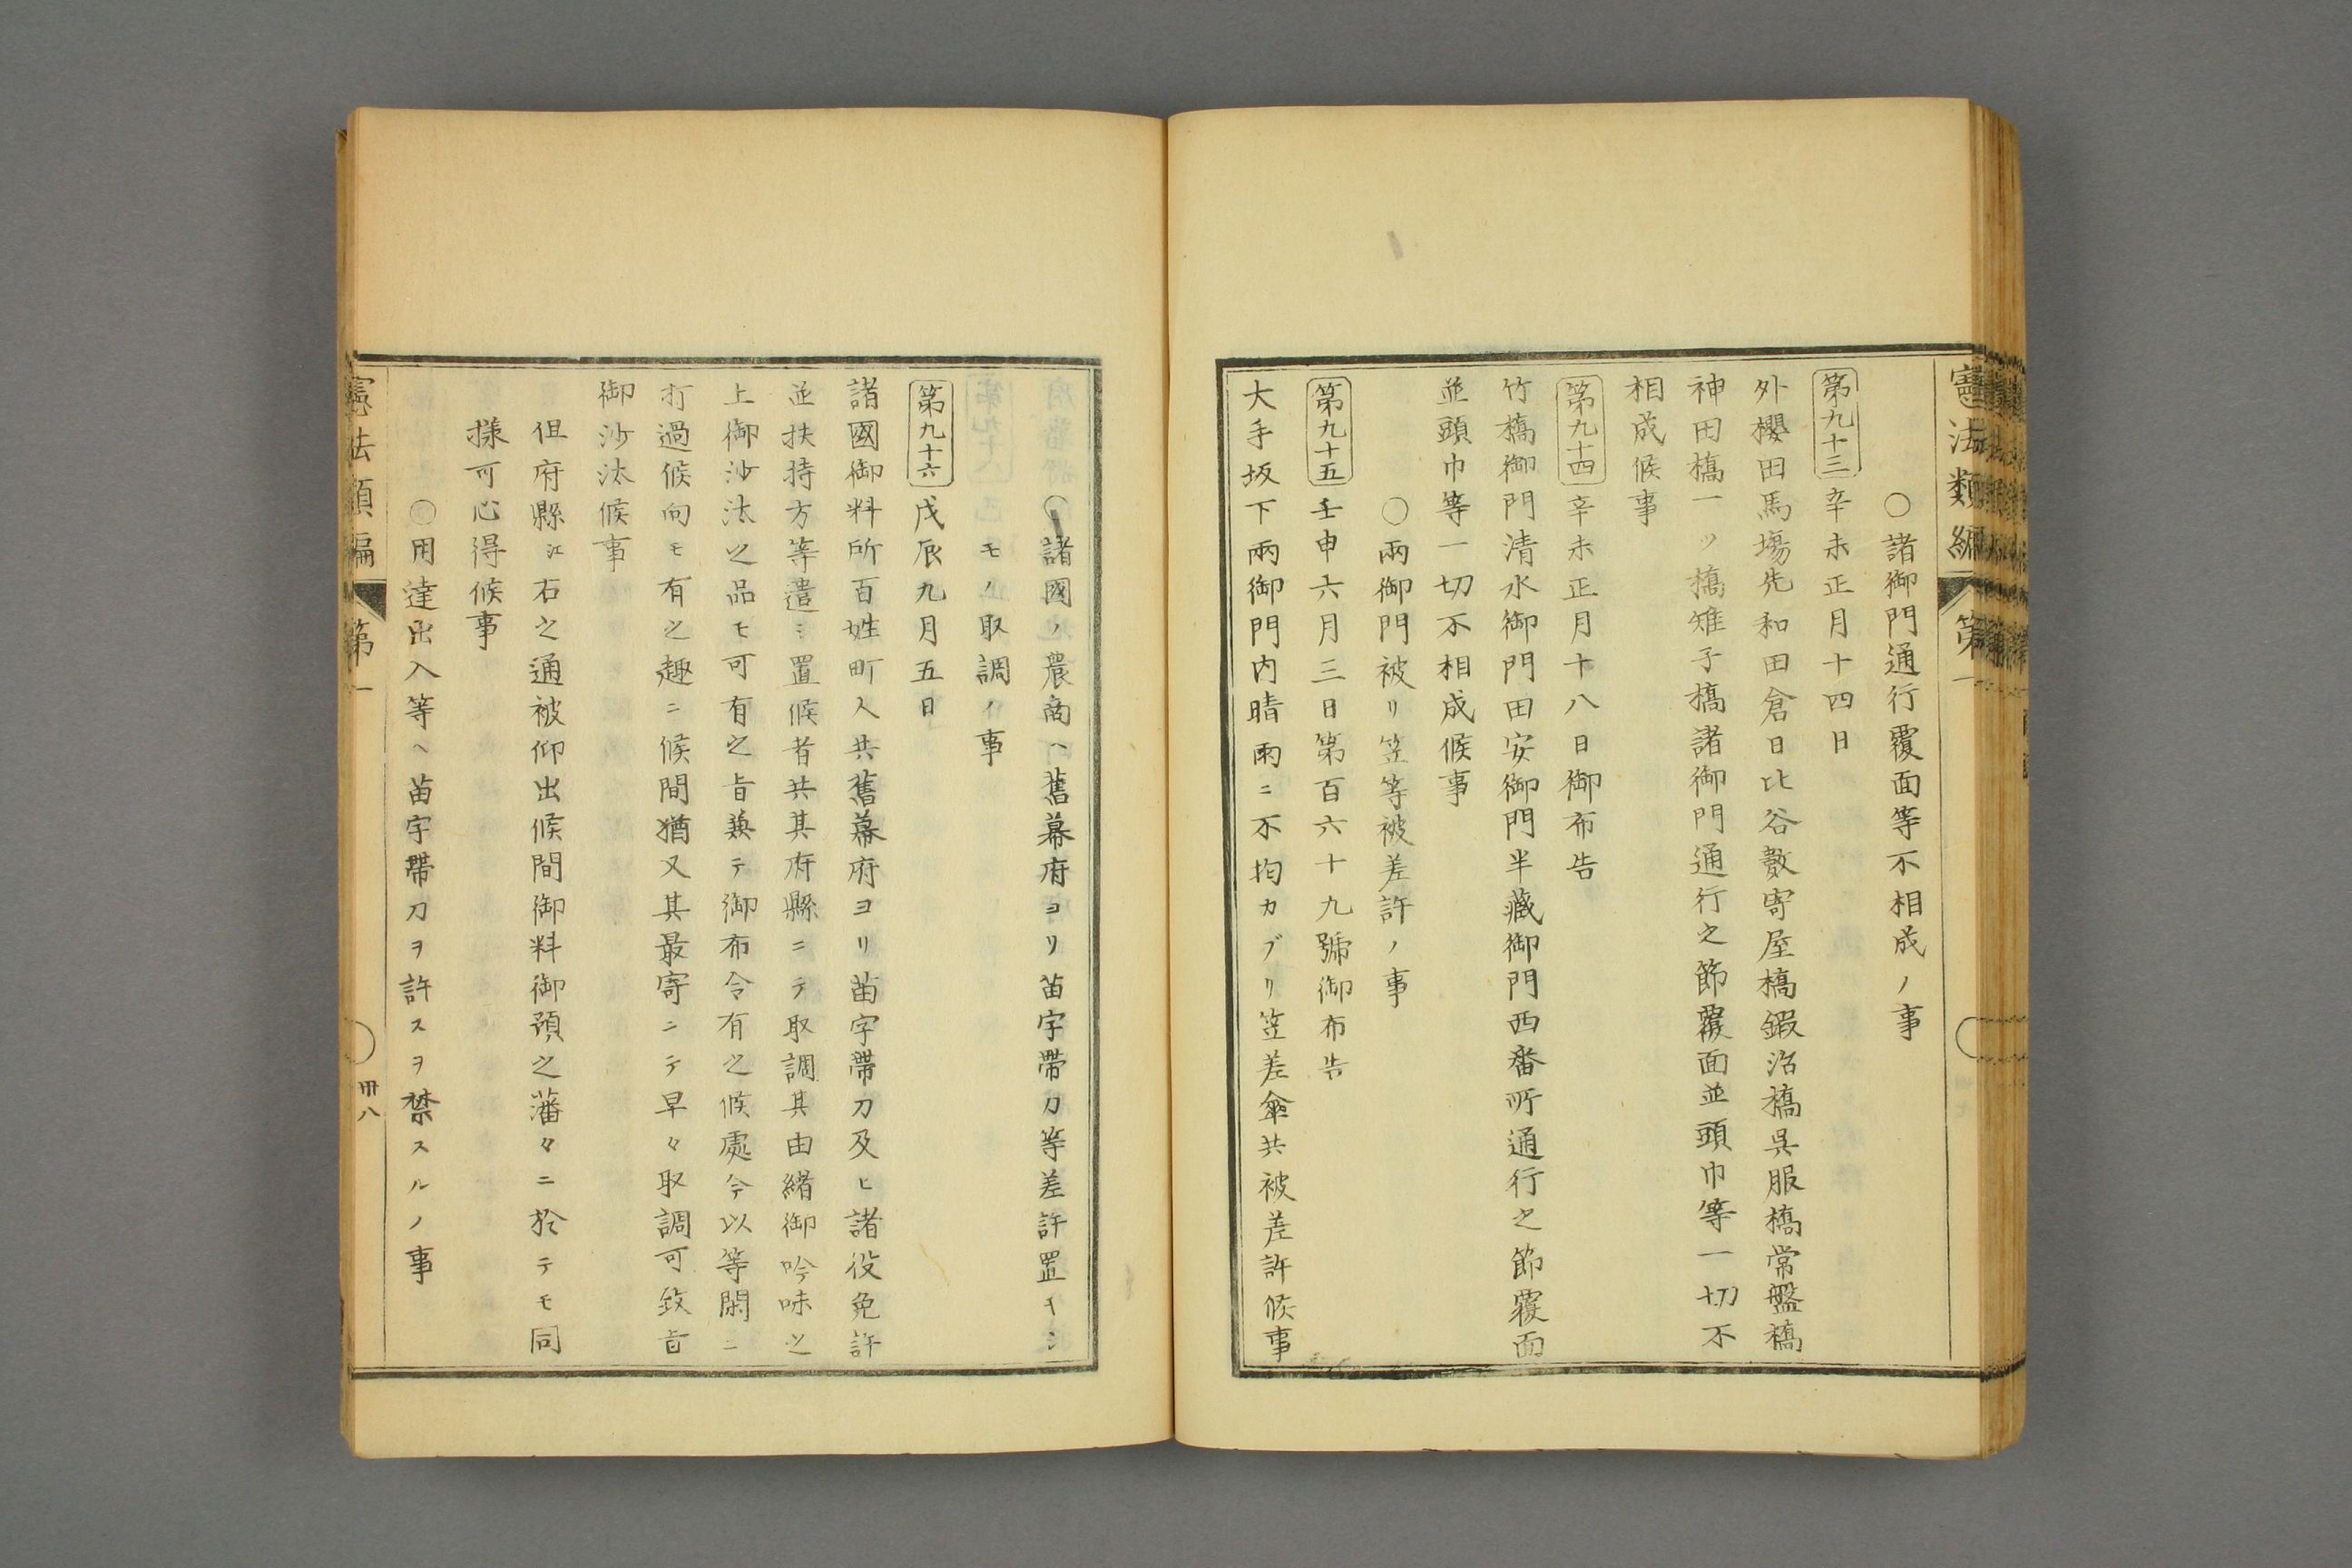 憲法類編 第一
○諸御門通行覆面等不相成ノ事
第九十三 辛未正月十四日
外櫻田馬場先和田倉日比谷數寄屋橋鍜冶橋呉服橋常盤橋
神田橋一ツ橋雉子橋諸御門通行之節覆面並頭巾等一切不
相成候事
第九十四 辛未正月十八日御布告
竹橋御門清水御門田安御門半藏御門西番所通行之節覆面
並頭巾等一切不相成候事
○兩御門被リ笠等被差許ノ事
第九十五 壬申六月三日第百六十九號御布告
大手坂下兩御門内晴雨ニ不拘カブリ笠差傘共被差許候事
○諸國ノ農商ヘ舊幕府ヨリ苗字帶刀等差許置キシ
モノ取調ノ事
第九十六 戊辰九月五日
諸國御料所百姓町人共舊幕府ヨリ苗字帶刀及ヒ諸役免許
並扶持方等遣ミ置候者共其府縣ニテ取調其由緒御吟味之
上御沙汰之品モ可有之旨兼テ御布令有之候處今以等閑ニ
打過候向モ有之趣ニ候間猶又其最寄ニテ早々取調可致旨
御沙汰候事
但府縣江右之通被仰出候間御料御預之藩々ニ於テモ同
樣可心得候事
○用達出入等ヘ苗字帶刀ヲ許スヲ禁スルノ事
憲法類編 第一
卅八